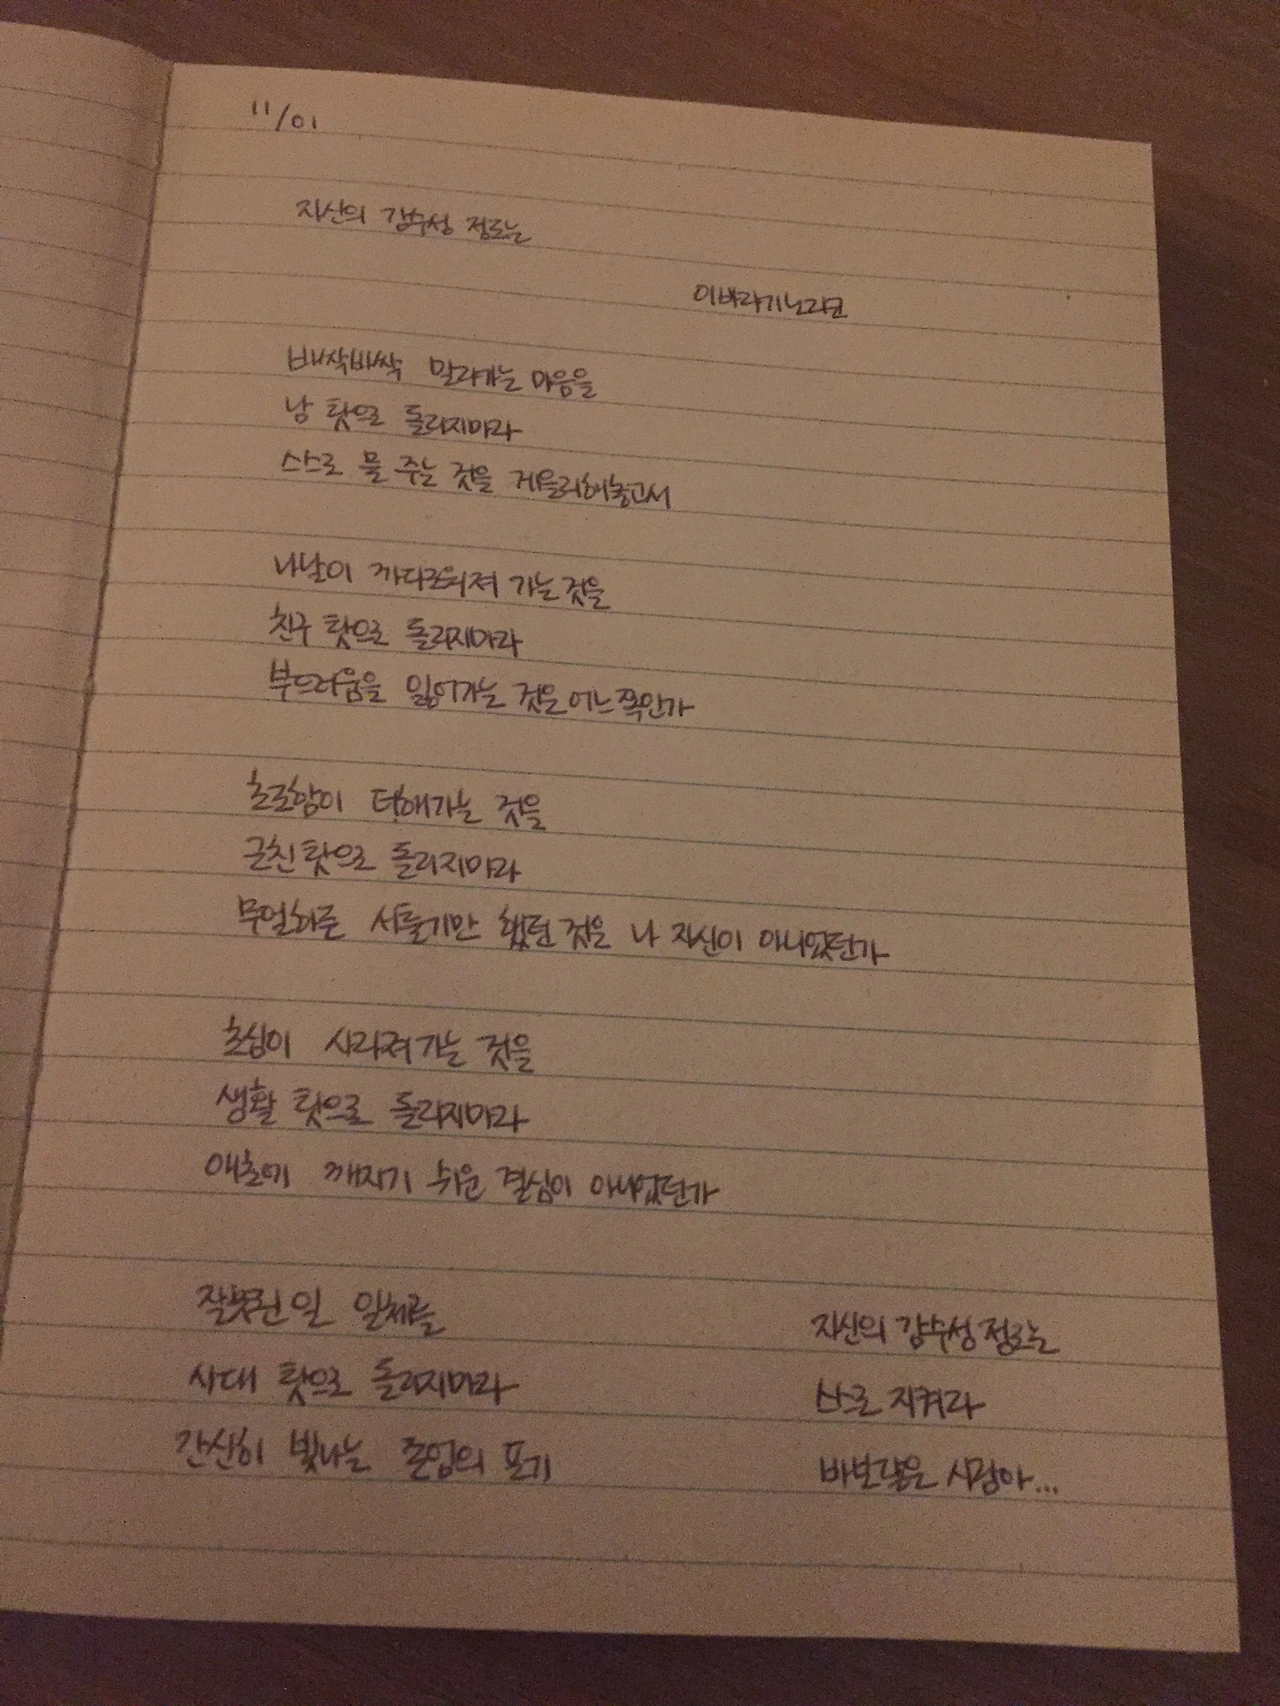 11/01
자신의 감수성 정도는
이바라기 노리코
바싹바싹 말라가는 마음을
남 탓으로 돌리지마라
스스로 물 주는 것을 게을리해놓고서
나날이 까다로워져 가는 것을
친구 탓으로 돌리지마라
부드러움을 잃어가는 것은 어느 쪽인가
초조함이 더해가는 것을
근친 탓으로 돌리지마라
무얼하든 서툴기만 했던 것은 나 자신이 아니었던가
초심이 사라져가는 것을
생활 탓으로 돌리지마라
애초에 깨지기 쉬운 결심이 아니었던가
잘못된 일 일체를
시대 탓으로 돌리지마라
간신히 빛나는 존엄의 포기
자신의 감수성 정도는
스스로 지켜라
바보같은 사람아...